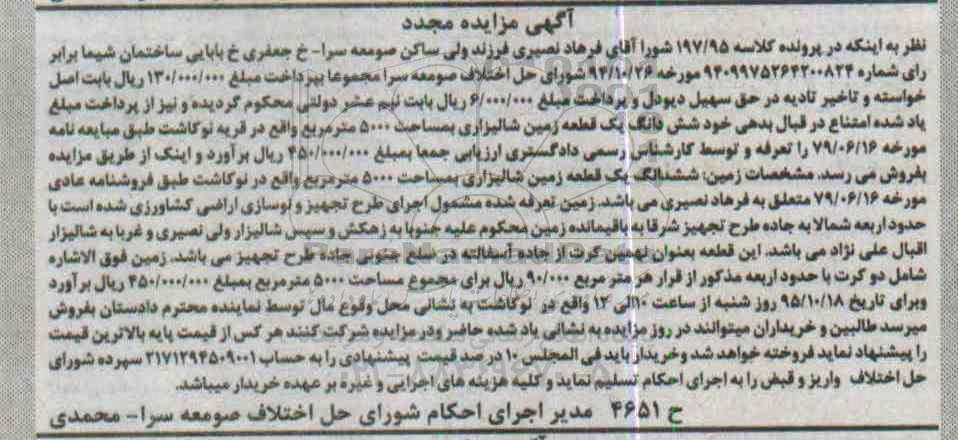 آگهی مزایده مجدد
نظر به اینکه در پرونده کلاسه ۱۹۷/۹۵ شورا آقای فرهاد نصیری فرزند ولی ساکن صومعه سرا- خ جعفری خ بابایی ساختمان شیما برابر
رای شماره ۹۴۰۹۹۷۵۲۶۴۲۰۰۸۲۴ مورخه ۹۴/۱۰/۲۶ شورای حل اختلاف صومعه سرا مجموعا بپرداخت مبلغ ۱۳۰/۰۰۰/۰۰۰ ریال بابت اصل
خواسته و تاخیر تادیه در حق سهیل دیودل و پرداخت مبلغ ۶/۰۰۰/۰۰۰ ریال بابت نیم عشر دولتی محکوم گردیده و نیز از پرداخت مبلغ
یاد شده امتناع در قبال بدهی خود شش دانگ یک قطعه زمین شالیزاری بمساحت ۵۰۰۰ مترمربع واقع در قریه نوکاشت طبق مبایعه نامه
مورخه ۷۹/۰۶/۱۶ را تعرفه و توسط کارشناس رسمی دادگستری ارزیابی جمعا بمبلغ ۴۵۰/۰۰۰/۰۰۰ ریال برآورد و اینک از طریق مزایده
بفروش می رسد. مشخصات زمین: ششدانگ یک قطعه زمین شالیزاری بمساحت ۵۰۰۰ مترمربع واقع در نوکاشت طبق فروشنامه عادی
مورخه ۷۹/۰۶/۱۶ متعلق به فرهاد نصیری می باشد. زمین تعرفه شده مشمول اجرای طرح تجهیز و نوسازی اراضی کشاورزی شده است با
حدود اربعه شمالا به جاده طرح تجهیز شرقا به باقیمانده زمین محکوم علیه جنوبا به زهکش و سپس شالیزار ولی نصیری و غربا به شالیزار
اقبال علی نژاد می باشد. این قطعه بعنوان نهمین کرت از جاده آسفالته در ضلع جنوبی جاده طرح تجهیز می باشد. زمین فوق الاشاره
شامل دو کرت با حدود اربعه مذکور از قرار هر متر مربع ۹۰/۰۰۰ ریال برای مجموع مساحت ۵۰۰۰ مترمربع بمبلغ ۴۵۰/۰۰۰/۰۰۰ ریال برآورد
وبرای تاریخ ۹۵/۱۰/۱۸ روز شنبه از ساعت ۱۰الی ۱۲ واقع در نوکاشت به نشانی محل وقوع مال توسط نماینده محترم دادستان بفروش
میرسد طالبین و خریداران میتوانند در روز مزایده به نشانی یاد شده حاضر ودر مزایده شرکت کنند هر کس از قیمت پایه بالاترین قیمت
را پیشنهاد نماید فروخته خواهد شد وخریدار باید فی المجلس ۱۰ در صد قیمت پیشنهادی را به حساب ۲۱۷۱۲۹۴۵۰۹۰۰۱ سپرده شورای
حل اختلاف واریز و قبض را به اجرای احکام تسلیم نماید و کلیه هزینه های اجرایی و غیره بر عهده خریدار میباشد.
ح ۴۶۵۱ مدیر اجرای احکام شورای حل اختلاف صومعه سرا- محمدی